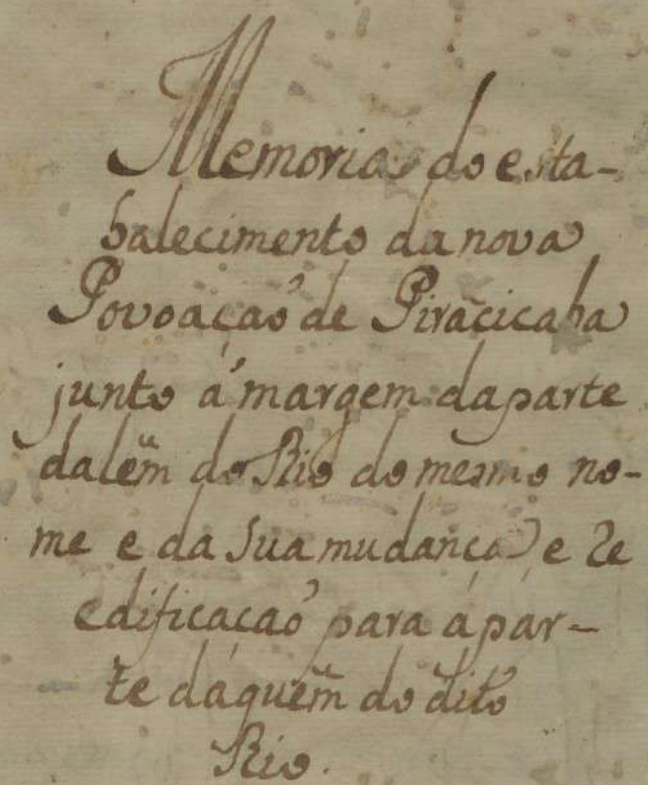 Memoria do esta-
balecimento da nova
Povoaçaõ de Piracicaba
junto á margem da parte
dalem do Rio do mesmo no-
me e da Sua mudança, e Re
edificaçaõ para a par-
te daquem do dito
Rio.